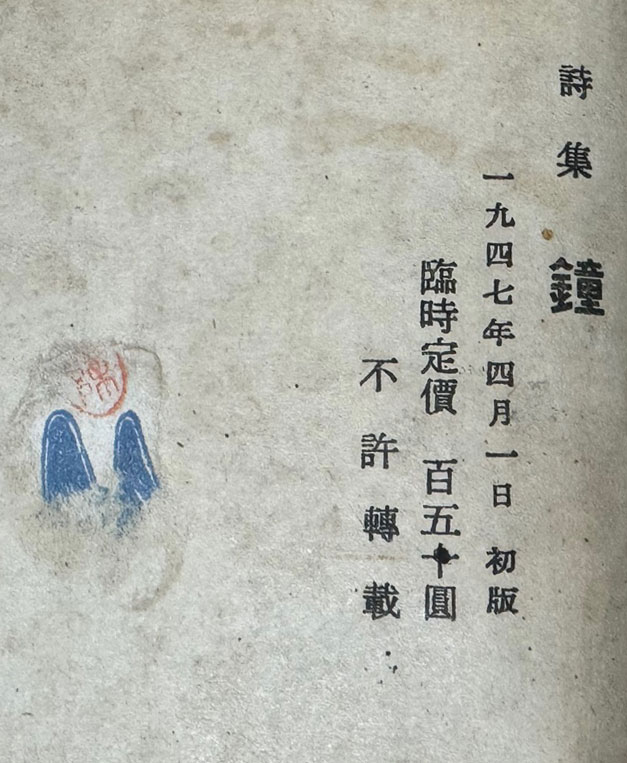 詩集 鐘
一九四七年四月一日 初版
臨時定價 百五十圓
不許轉載